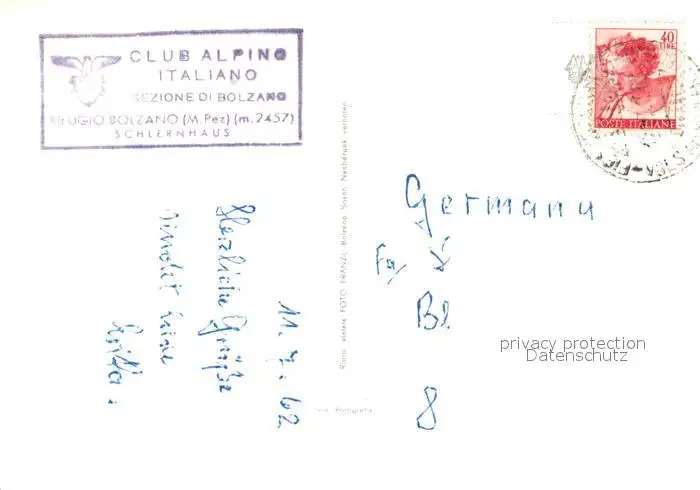 CLUB ALPINO
ITALIANO
SEZIONE DI BOLZANO
RIFUGIO BOLZANO (M. Pez) (m. 2457)
SCHLERNHAUS
40
LIRE
POSTE ITALIANE
11. 7. 62
Herzliche Grüße
sendet
FOTO FRANZL Bolzano Bozen Nachdruck verboten
Fotografia
Germany
Bl
8
privacy protection
Datenschutz